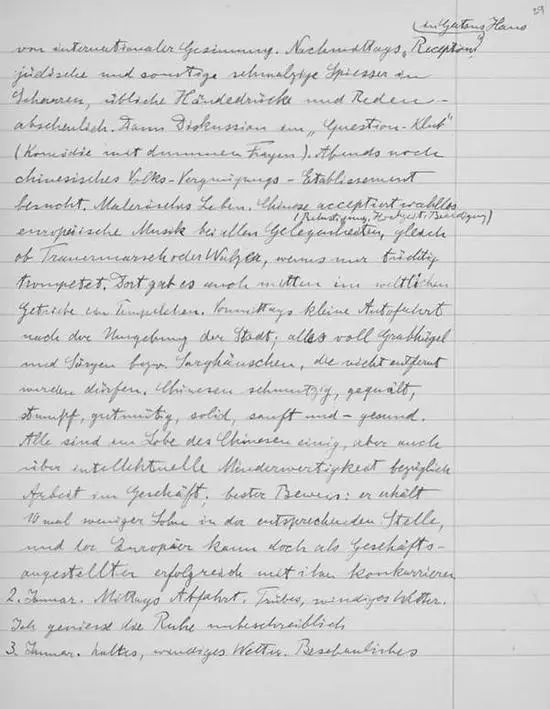 29
im Gatons Haus
von internationaler Gesinnung. Nachmittags „Reception“
jüdische und sonstige schmalzige Spiesser in
Scharen, übliche Händedrücke und Reden –
abscheulich. Dann Diskussion im „Question-Klub“
(Komödie mit dummen Fragen). Abends noch
chinesisches Volks-Vergnügungs-Etablissement
besucht. Malerisches Leben. Chinese acceptiert wahllos
(Belustigung, Hochzeit, Beerdigung)
europäische Musik bei allen Gelegenheiten, gleich
ob Trauermarsch oder Walzer, wenns nur tüchtig
trompetet. Dort gab es auch mitten im weltlichen
Getriebe ein Tempelchen. Vormittags kleine Autofahrt
nach der Umgebung der Stadt; alles voll Grabhügel
und Särgen bezw. Sarghäuschen, die nicht entfernt
werden dürfen. Chinesen schmutzig, gequält,
stumpf, gutmütig, solid, sanft und – gesund.
Alle sind im Lobe des Chinesen einig, aber auch
über intellektuelle Minderwertigkeit bezüglich
Arbeit im Geschäft; bester Beweis: er erhält
10 mal weniger Lohn in der entsprechenden Stelle,
und der Europäer kann doch als Geschäfts-
angestellter erfolgreich mit ihm konkurrieren
2. Januar. Mittags Abfahrt. Trübes, windiges Wetter.
Ich geniesse die Ruhe unbeschreiblich
3. Januar. Kaltes, windiges Wetter. Beschauliches